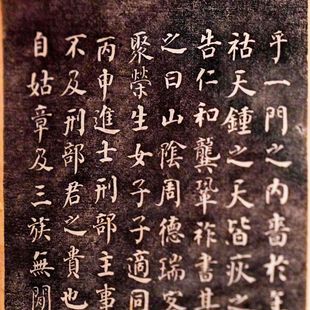 乎一門之内嗇於
祜天鍾之天皆疢之
告仁和龔鞏祚書其
之曰山陰周德瑞客
聚榮生女子子適同
丙申進士刑部主事
不及刑部君之貴也
自姑章及三族無閒